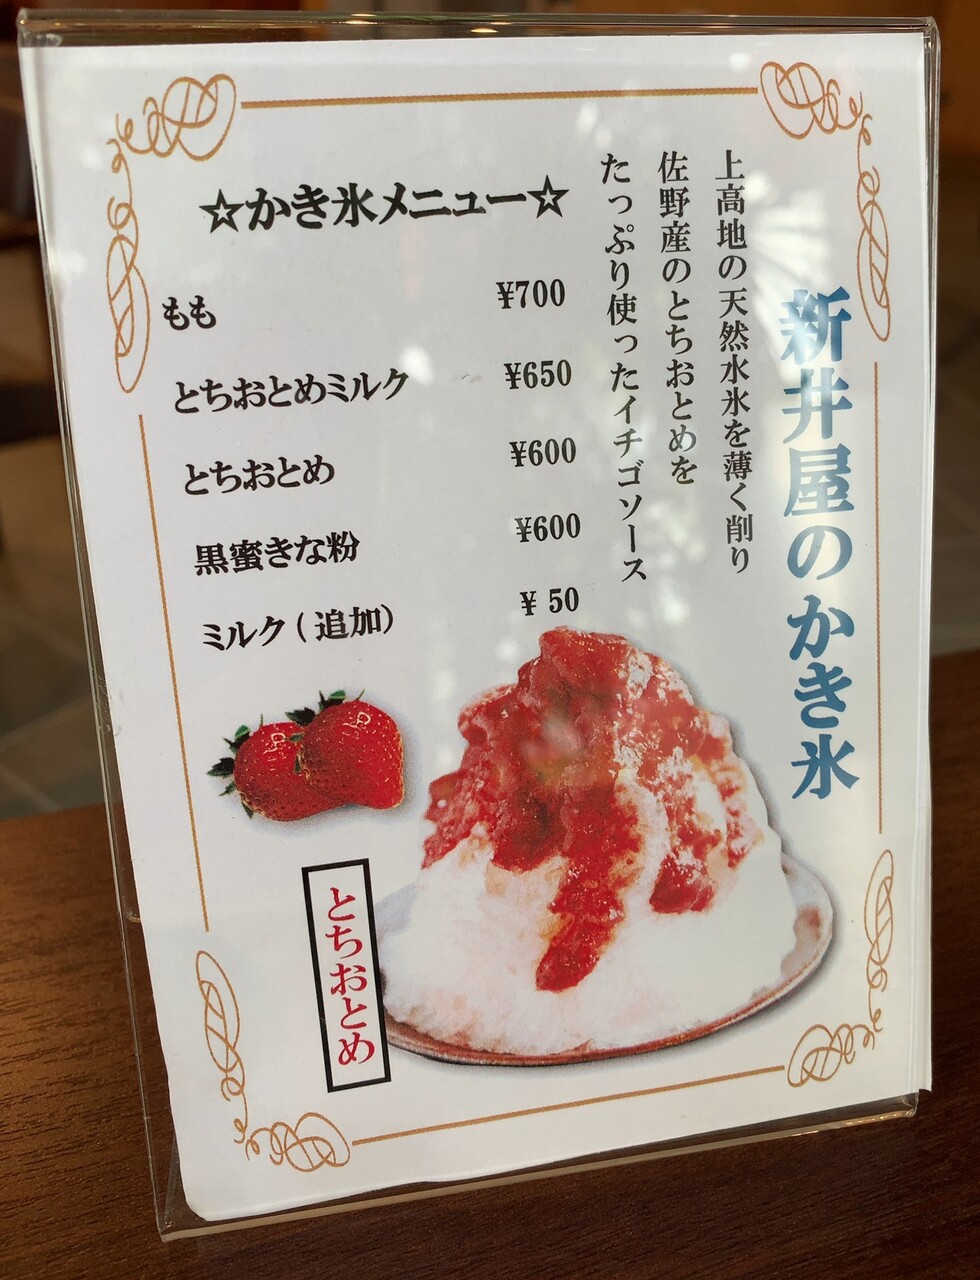 新井屋のかき氷
上高地の天然水氷を薄く削り
佐野産のとちおとめを
たっぷり使ったイチゴソース
☆かき氷メニュー☆
もも ¥700
とちおとめミルク ¥650
とちおとめ ¥600
黒蜜きな粉 ¥600
ミルク(追加) ¥ 50
とちおとめ